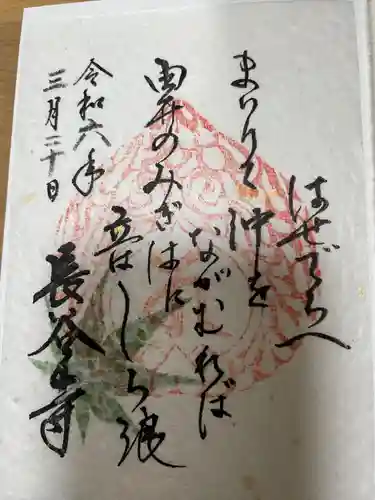 はせでらへ
まいりて沖を
ながむれば
由井のみぎはに
音はしら浪
令和六年
三月三十日
長谷寺